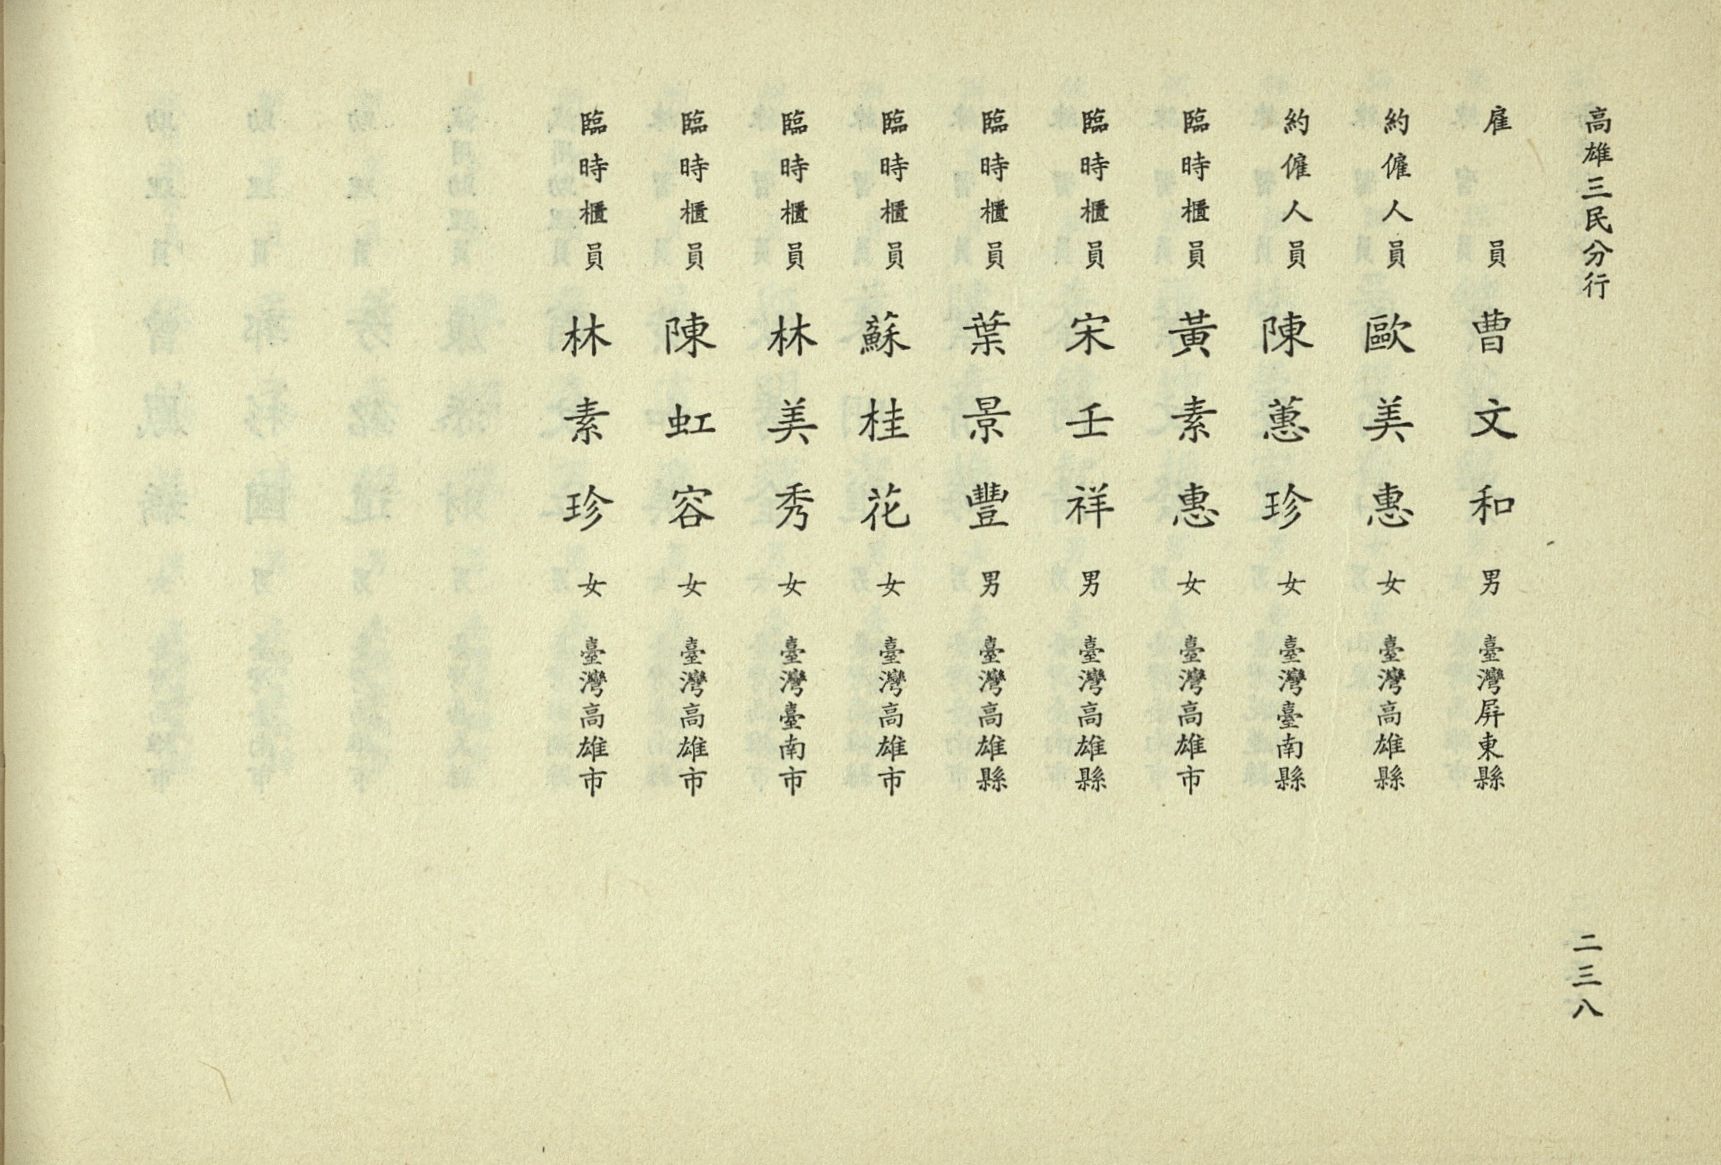 高雄三民分行
二三八
雇員 曹文和 男 臺灣屏東縣
約僱人員 歐美惠 女 臺灣高雄縣
約僱人員 陳蕙珍 女 臺灣臺南縣
臨時櫃員 黃素惠 女 臺灣高雄市
臨時櫃員 宋壬祥 男 臺灣高雄縣
臨時櫃員 葉景豐 男 臺灣高雄縣
臨時櫃員 蘇桂花 女 臺灣高雄市
臨時櫃員 林美秀 女 臺灣臺南市
臨時櫃員 陳虹容 女 臺灣高雄市
臨時櫃員 林素珍 女 臺灣高雄市